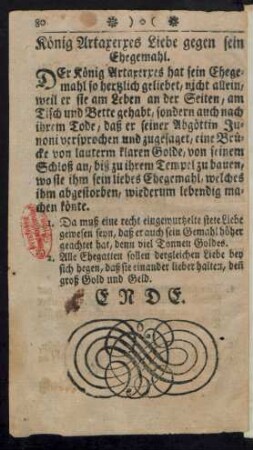 80 ❋ ) o ( ❋
König Artaxerxes Liebe gegen sein
Ehegemahl.
DEr König Artaxerxes hat sein Ehege-
mahl so hertzlich geliebet, nicht allein,
weil er sie am Leben an der Seiten, am
Tisch und Bette gehabt, sondern auch nach
ihrem Tode, daß er seiner Abgöttin Ju-
noni versprochen und zugesaget, eine Brü-
cke von lauterm klaren Golde, von seinem
Schloß an, biß zu ihrem Tempel zu bauen,
wo sie ihm sein liebes Ehegemahl, welches
ihm abgestorben, wiederum lebendig ma-
chen könte.
1. Da muß eine recht eingewurtzelte stete Liebe
gewesen seyn, daß er auch sein Gemahl höher
geachtet hat, denn viel Tonnen Goldes.
2. Alle Ehegatten sollen dergleichen Liebe bey
sich hegen, daß sie einander lieber halten, deñ
groß Gold und Geld.
ENDE.